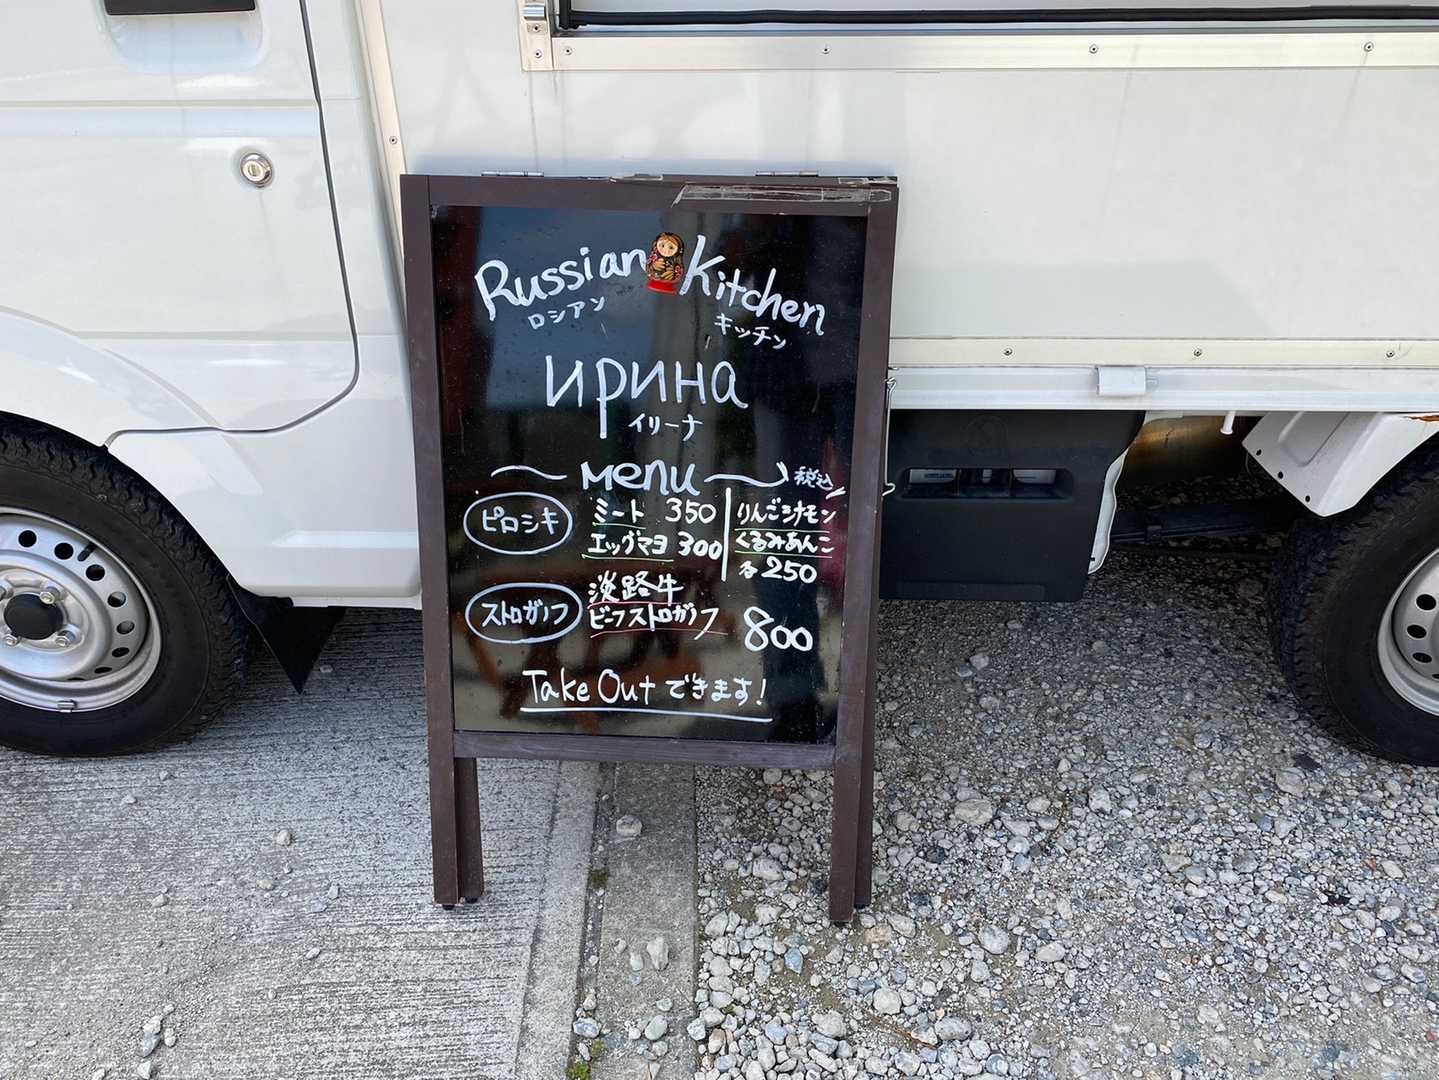 Russian Kitchen
ロシアン キッチン
ирина
イリーナ
Menu 税込
ピロシキ
ミート 350
エッグマヨ 300
りんごシナモン
くるみあんこ
各250
ストロガノフ
淡路牛
ビーフストロガノフ 800
Take Out できます!